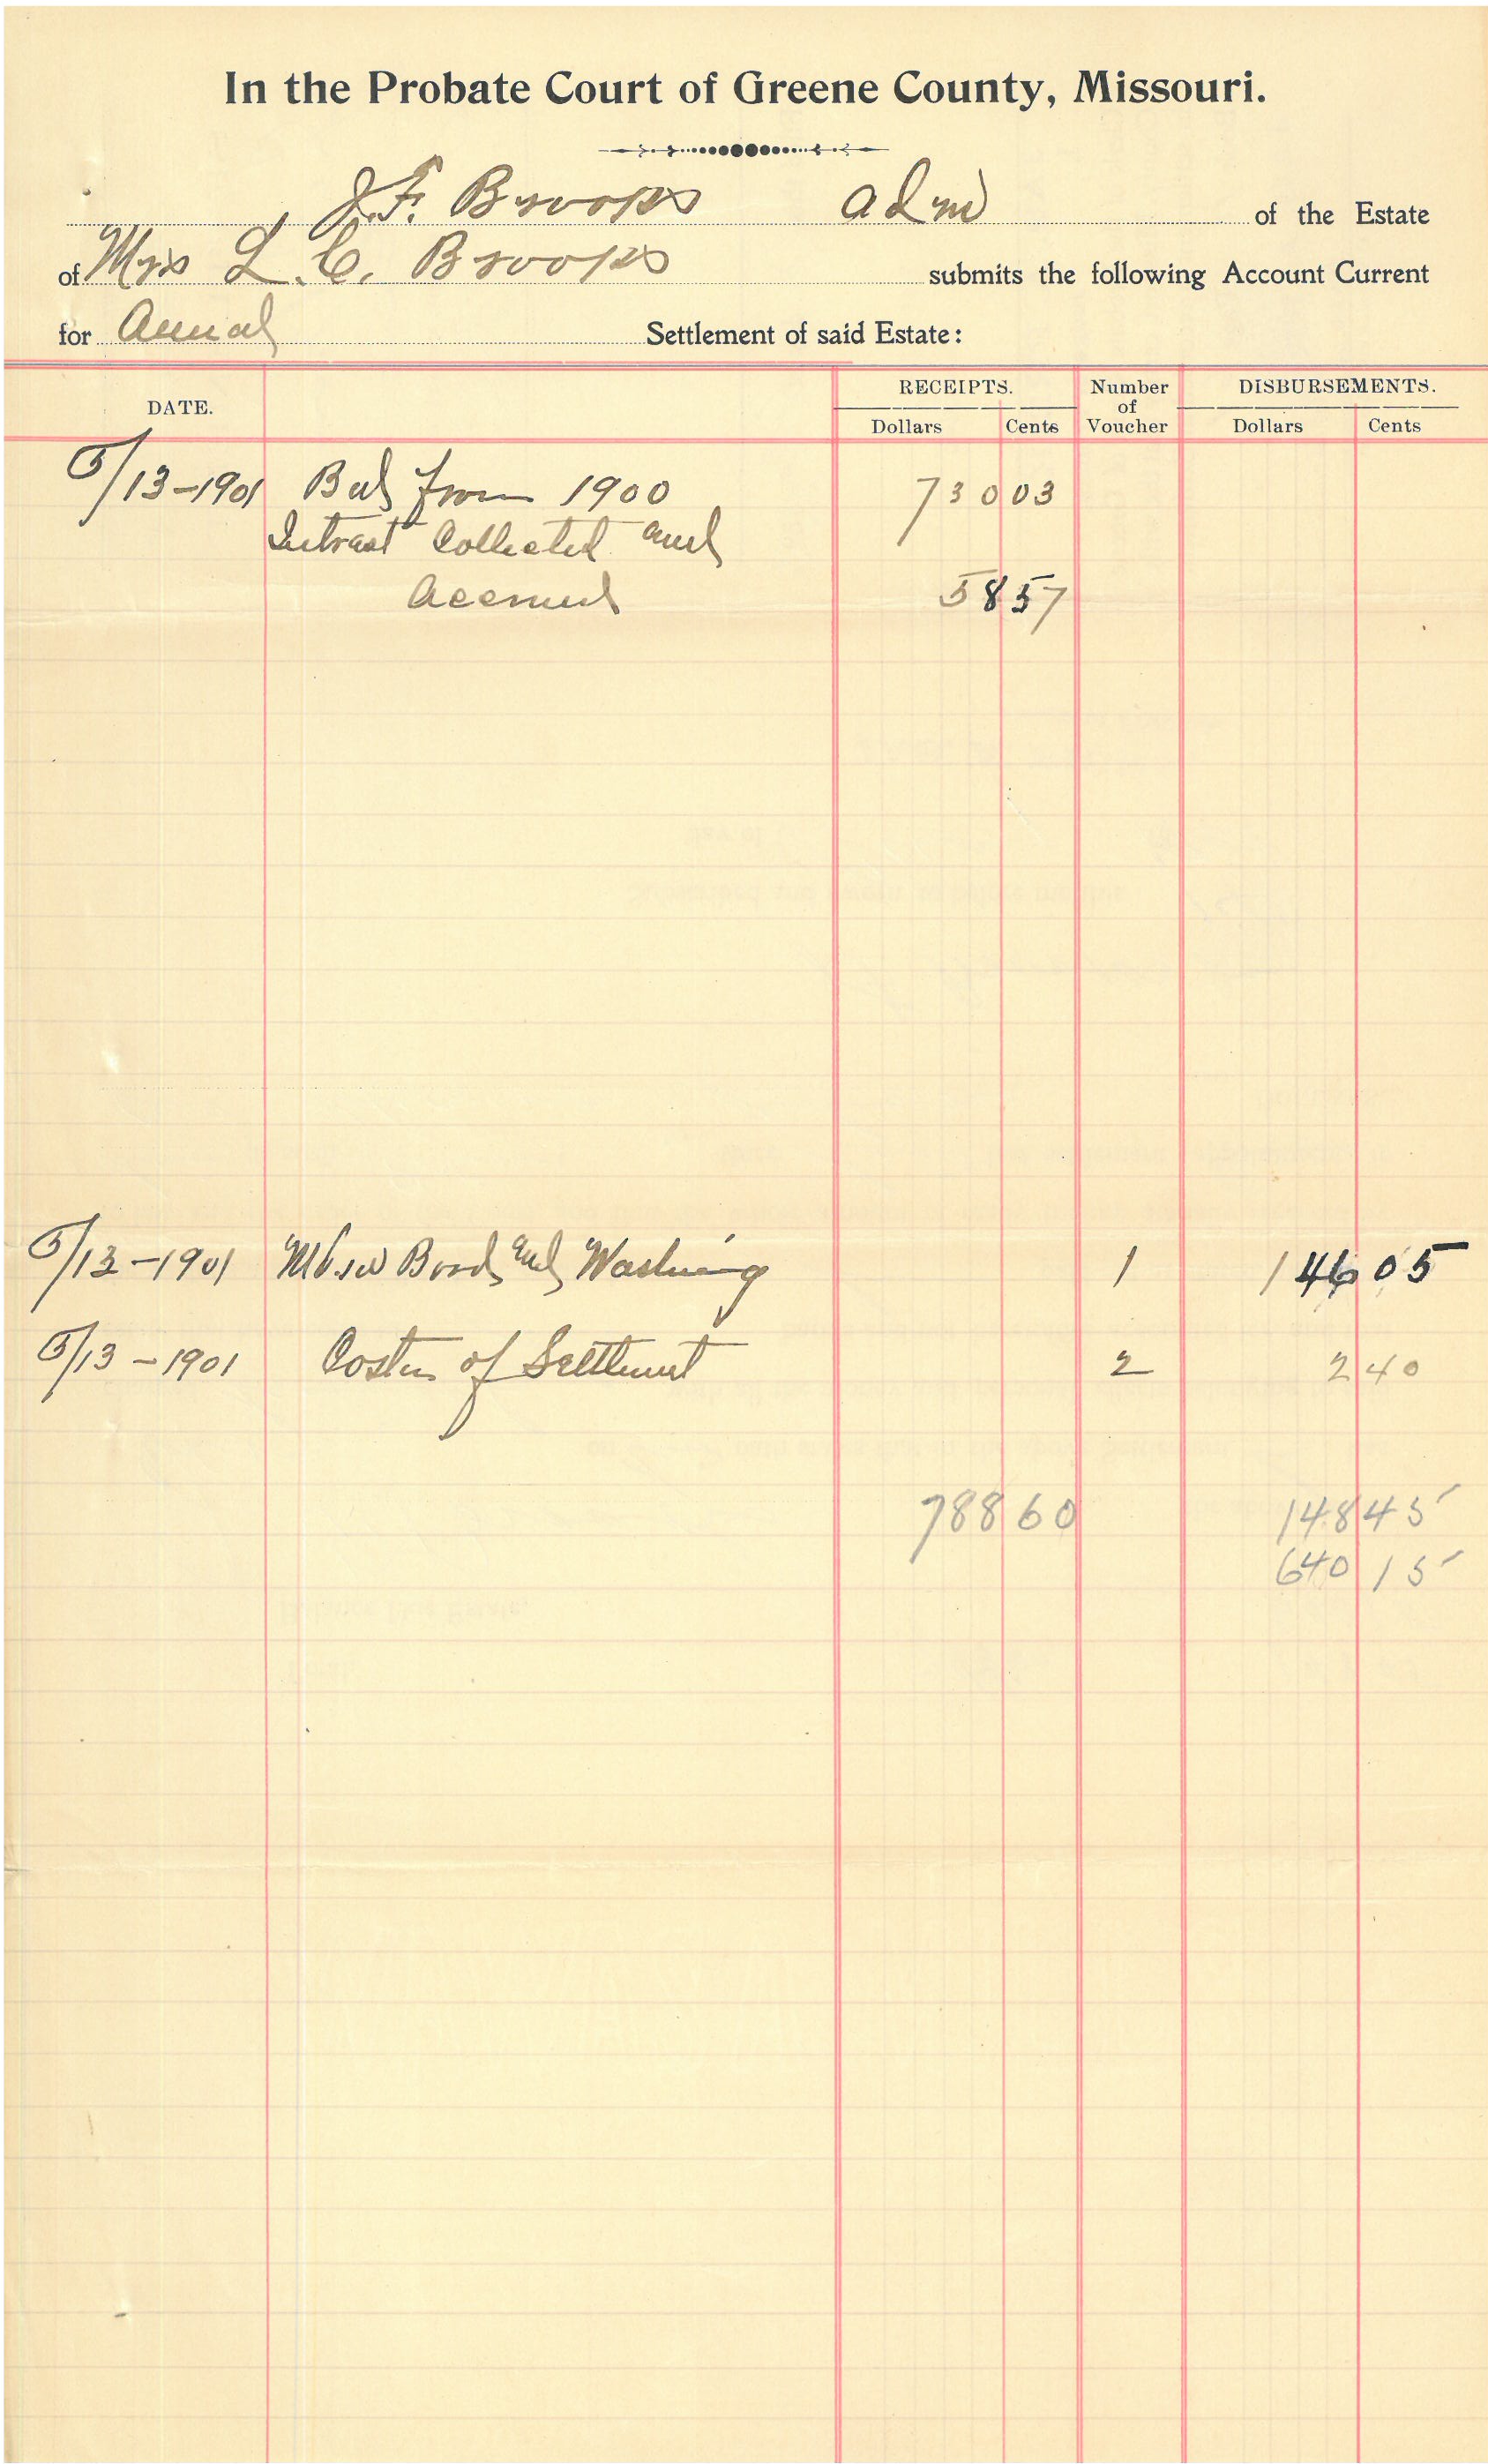 In the Probate Court of Greene County, Missouri.
J. F. Brooks adm of the Estate
of Mrs L. C. Brooks submits the following Account Current
for Annual Settlement of said Estate:
DATE. RECEIPTS. Number of Voucher DISBURSEMENTS.
Dollars Cents Dollars Cents
5/13-1901 Bal from 1900 730 03
Intrest Collected and
Accrued 58 57
5/13-1901 Board and Washing 1 146 05
5/13-1901 Costs of Settlment 2 2 40
788 60 148 45
640 15